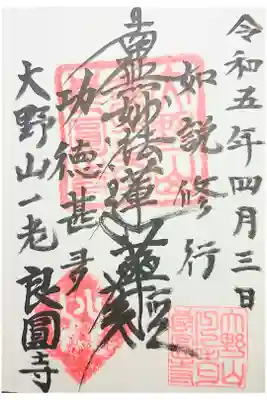 令和五年四月三日
如説修行
南無妙法蓮華経
功徳甚多
大野山一老
良圓寺